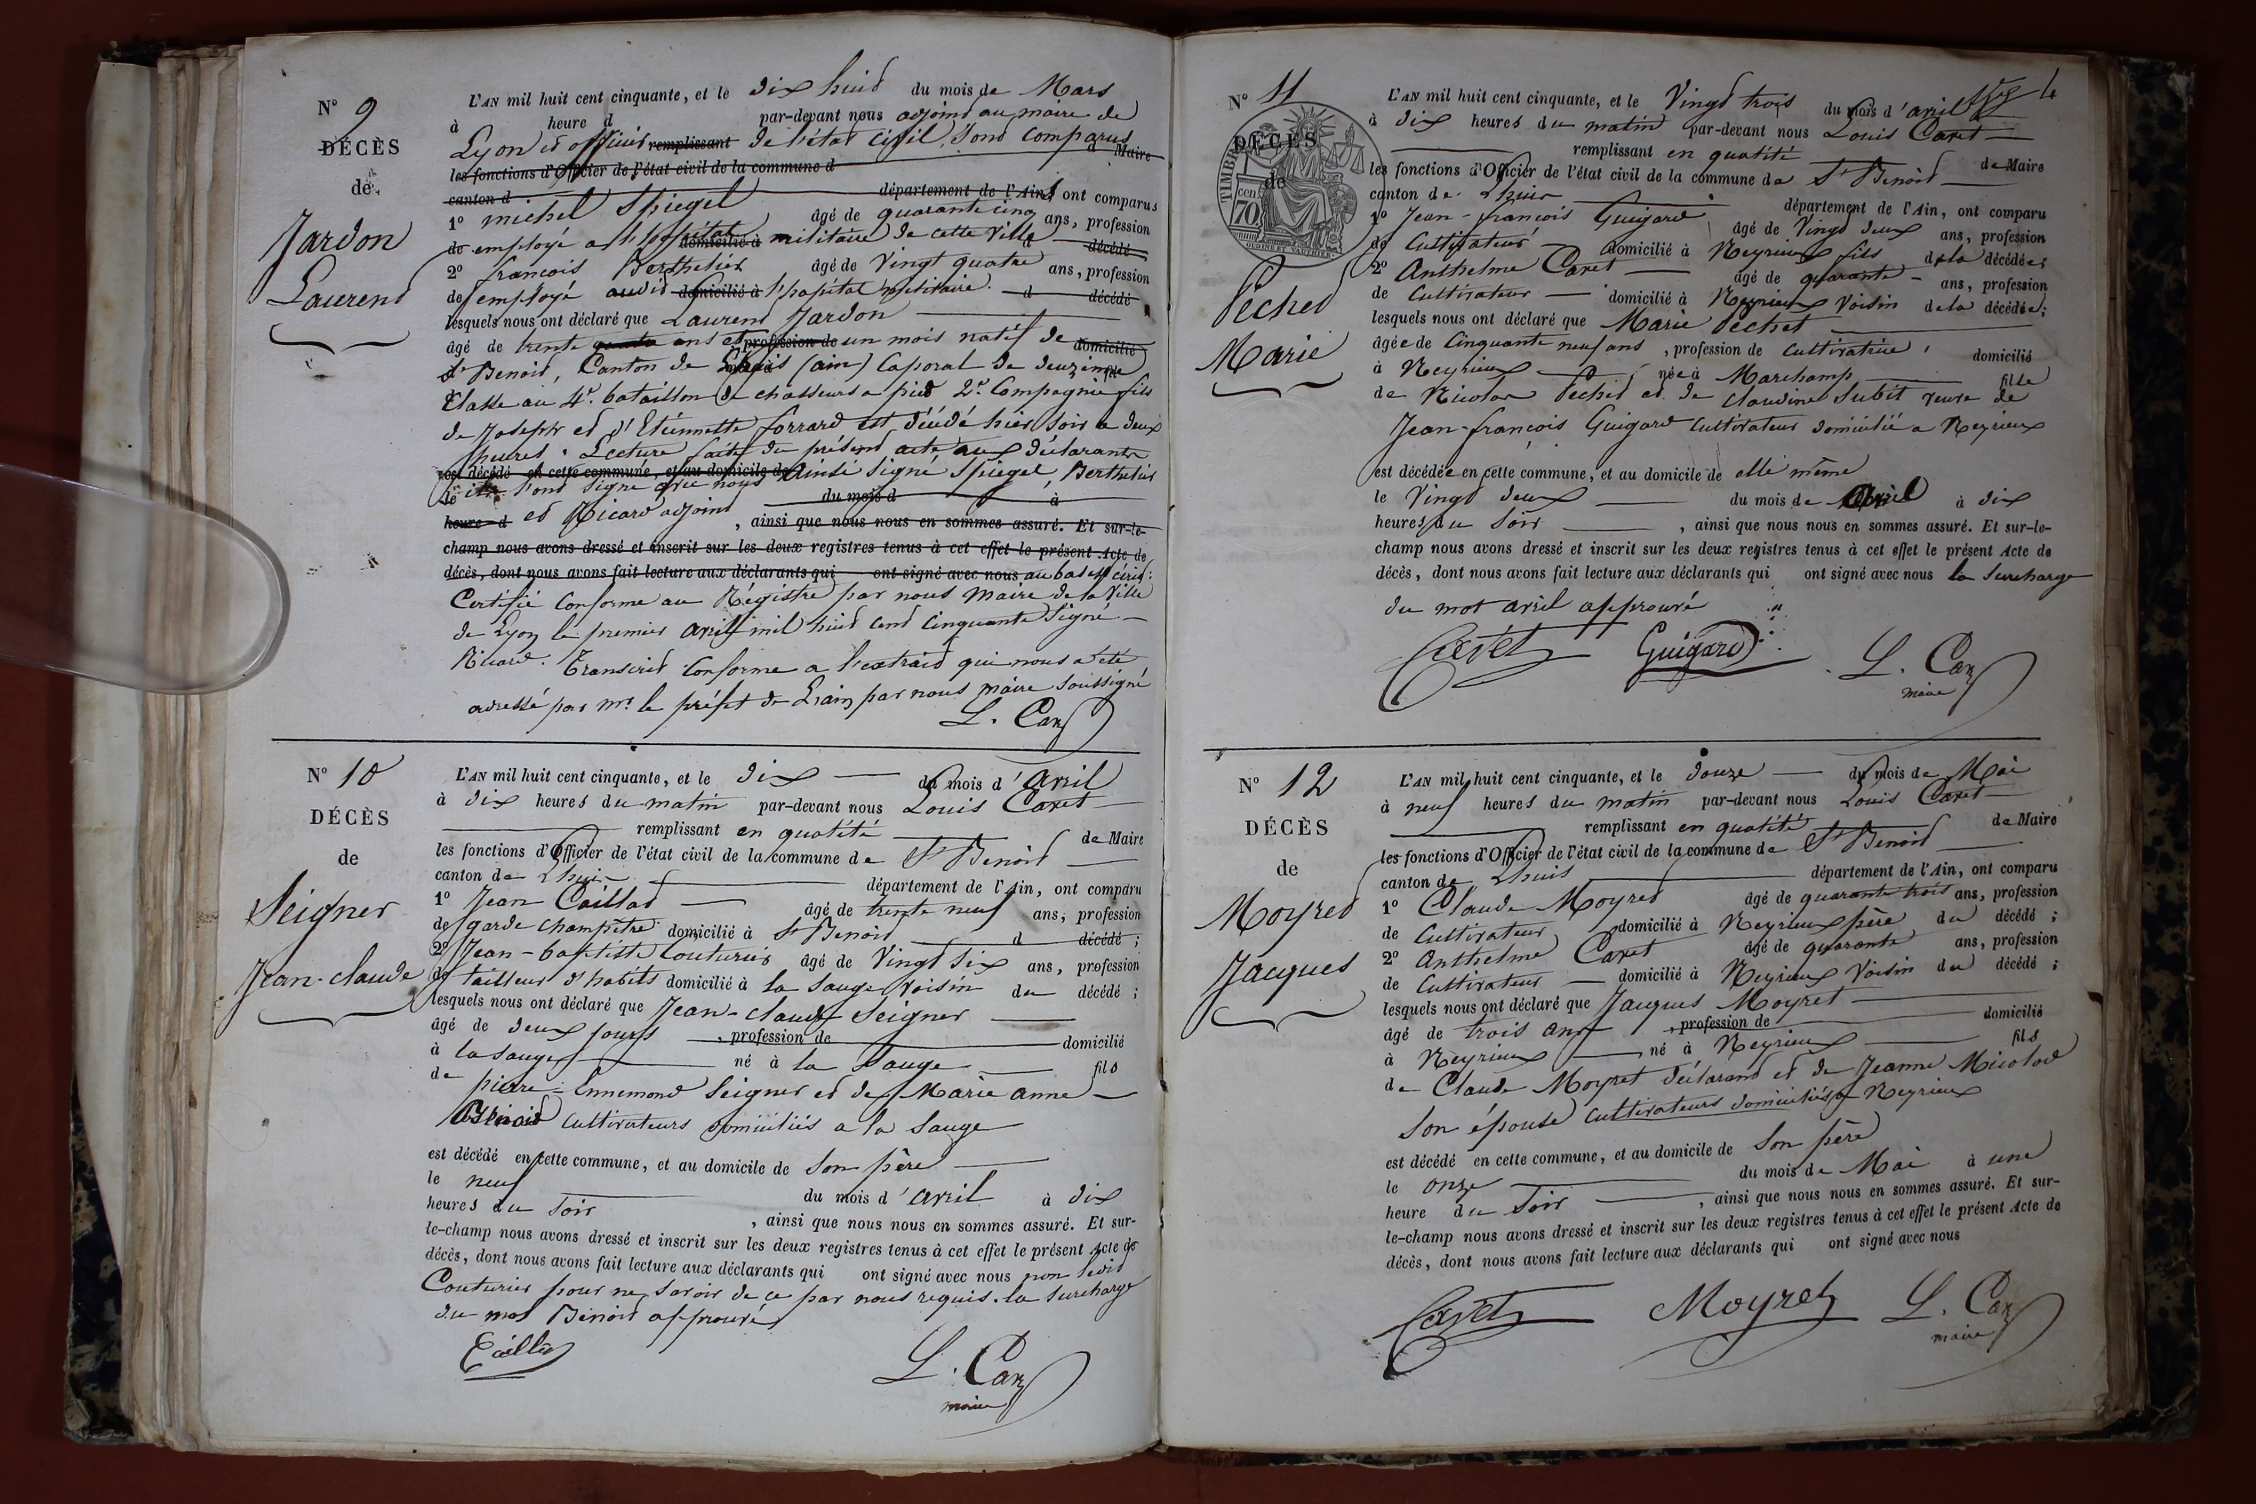 N° 9
DÉCÈS
de
Jardon
Laurend
L'AN mil huit cent cinquante, et le dix huit du mois de Mars
à heure d par-devant nous adjoint au maire de
Lyon et officier remplissant de l'état civil, sont comparus
les fonctions d'Officier de l'état civil de la commune d d Maire
canton d département de l'Ain, ont comparus
1° michel Spiegel âgé de quarante cinq ans, profession
de employé a l'hopital domicilié à militaire de cette ville décédé
2° françois Berthelier âgé de Vingt quatre ans, profession
de employé audit domicilié à l'hopital militaire. d décédé
lesquels nous ont déclaré que Laurend Jardon
âgé de trente ans et profession de un mois natif de domicilié
St Benoit, Canton de (ain) Caporal de deuxième
Classe au 4e. bataillon de chasseurs a pied 2e. Compagnie fils
de Joseph et d'Etiennette forrard est décédé hier soir a deux
heures. Lecture faite du présent acte aux déclarants
est décédé en cette commune, et au domicile de ainsi signé Spiegel, Berthelier
le ils l'ont signé avec nous du mois d à
heure d et Ricard adjoint, ainsi que nous nous en sommes assuré. Et sur-le-
champ nous avons dressé et inscrit sur les deux registres tenus à cet effet le présent Acte de
décès, dont nous avons fait lecture aux déclarants qui ont signé avec nous
Certifié Conforme au Régistre par nous Maire de la Ville
de Lyon le premier avril mil huit cent cinquante signé
Ricard. Transcrit Conforme a l'extrait qui nous a été
adressé par mr. le préfet de L'ain par nous maire soussigné
L. Car
N° 10
DÉCÈS
de
Seigner
Jean-claude
L'AN mil huit cent cinquante, et le dix du mois d'avril
à dix heures du matin par-devant nous Louis Caret
remplissant en qualité de Maire
les fonctions d'Officier de l'état civil de la commune de St Benoit
canton de Lhuis département de l'Ain, ont comparu
1° Jean Caillat âgé de trente neuf ans, profession
de garde champêtre domicilié à St Benoit d décédé ;
2° Jean-baptiste Couturier âgé de Vingt six ans, profession
de tailleur d'habits domicilié à la Sauge Voisin du décédé ;
lesquels nous ont déclaré que Jean-claude Seigner
âgé de deux jours , profession de domicilié
à la Sauge né à la Sauge fils
de pierre-Ennemond Seigner et de Marie anne
Benoit Cultivateurs domiciliés a la Sauge
est décédé en cette commune, et au domicile de son père
le neuf du mois d'avril à dix
heures du soir , ainsi que nous nous en sommes assuré. Et sur-
le-champ nous avons dressé et inscrit sur les deux registres tenus à cet effet le présent Acte de
décès, dont nous avons fait lecture aux déclarants qui ont signé avec nous non ledit
Couturier pour ne savoir de ce par nous requis. la surcharge
du mot Benoit approuvé
Caillat
L. Car
maire
N° 11
DÉCÈS
de
TIMBRE
70 cen
Pechet
Marie
L'AN mil huit cent cinquante, et le Vingt trois du mois d'avril
à dix heures du matin par-devant nous Louis Caret
remplissant en qualité de Maire
les fonctions d'Officier de l'état civil de la commune de St Benoit
canton de Lhuis département de l'Ain, ont comparu
1° Jean-françois Guigard âgé de Vingt deux ans, profession
de Cultivateur domicilié à Neyrieux fils de la décédée ;
2° Anthelme Caret âgé de quarante ans, profession
de Cultivateur domicilié à Neyrieux Voisin de la décédée ;
lesquels nous ont déclaré que Marie Pechet
âgée de Cinquante neuf ans , profession de Cultivatrice , domicilié
à Neyrieux née à Marchamp fille
de Nicolas Pechet et de Claudine Subit veuve de
Jean-françois Guigard Cultivateur domicilié a Neyrieux
est décédée en cette commune, et au domicile de elle même
le Vingt deux du mois de Avril à dix
heures du soir , ainsi que nous nous en sommes assuré. Et sur-le-
champ nous avons dressé et inscrit sur les deux registres tenus à cet effet le présent Acte de
décès, dont nous avons fait lecture aux déclarants qui ont signé avec nous la surcharge
du mot avril approuvé
Caret Guigard L. Car
maire
N° 12
DÉCÈS
de
Moyret
Jacques
L'AN mil huit cent cinquante, et le douze du mois de Mai
à neuf heures du matin par-devant nous Louis Caret
remplissant en qualité de Maire
les fonctions d'Officier de l'état civil de la commune de St Benoit
canton de Lhuis département de l'Ain, ont comparu
1° Claude Moyret âgé de quarante trois ans, profession
de Cultivateur domicilié à Neyrieux père du décédé ;
2° Anthelme Caret âgé de quarante ans, profession
de Cultivateur domicilié à Neyrieux Voisin du décédé ;
lesquels nous ont déclaré que Jacques Moyret
âgé de trois ans , profession de domicilié
à Neyrieux né à Neyrieux fils
de Claude Moyret déclarant et de Jeanne Micolod
son épouse Cultivateurs domiciliés a Neyrieux
est décédé en cette commune, et au domicile de son père
le onze du mois de Mai à une
heure du soir , ainsi que nous nous en sommes assuré. Et sur-
le-champ nous avons dressé et inscrit sur les deux registres tenus à cet effet le présent Acte de
décès, dont nous avons fait lecture aux déclarants qui ont signé avec nous
Caret Moyret L. Car
maire